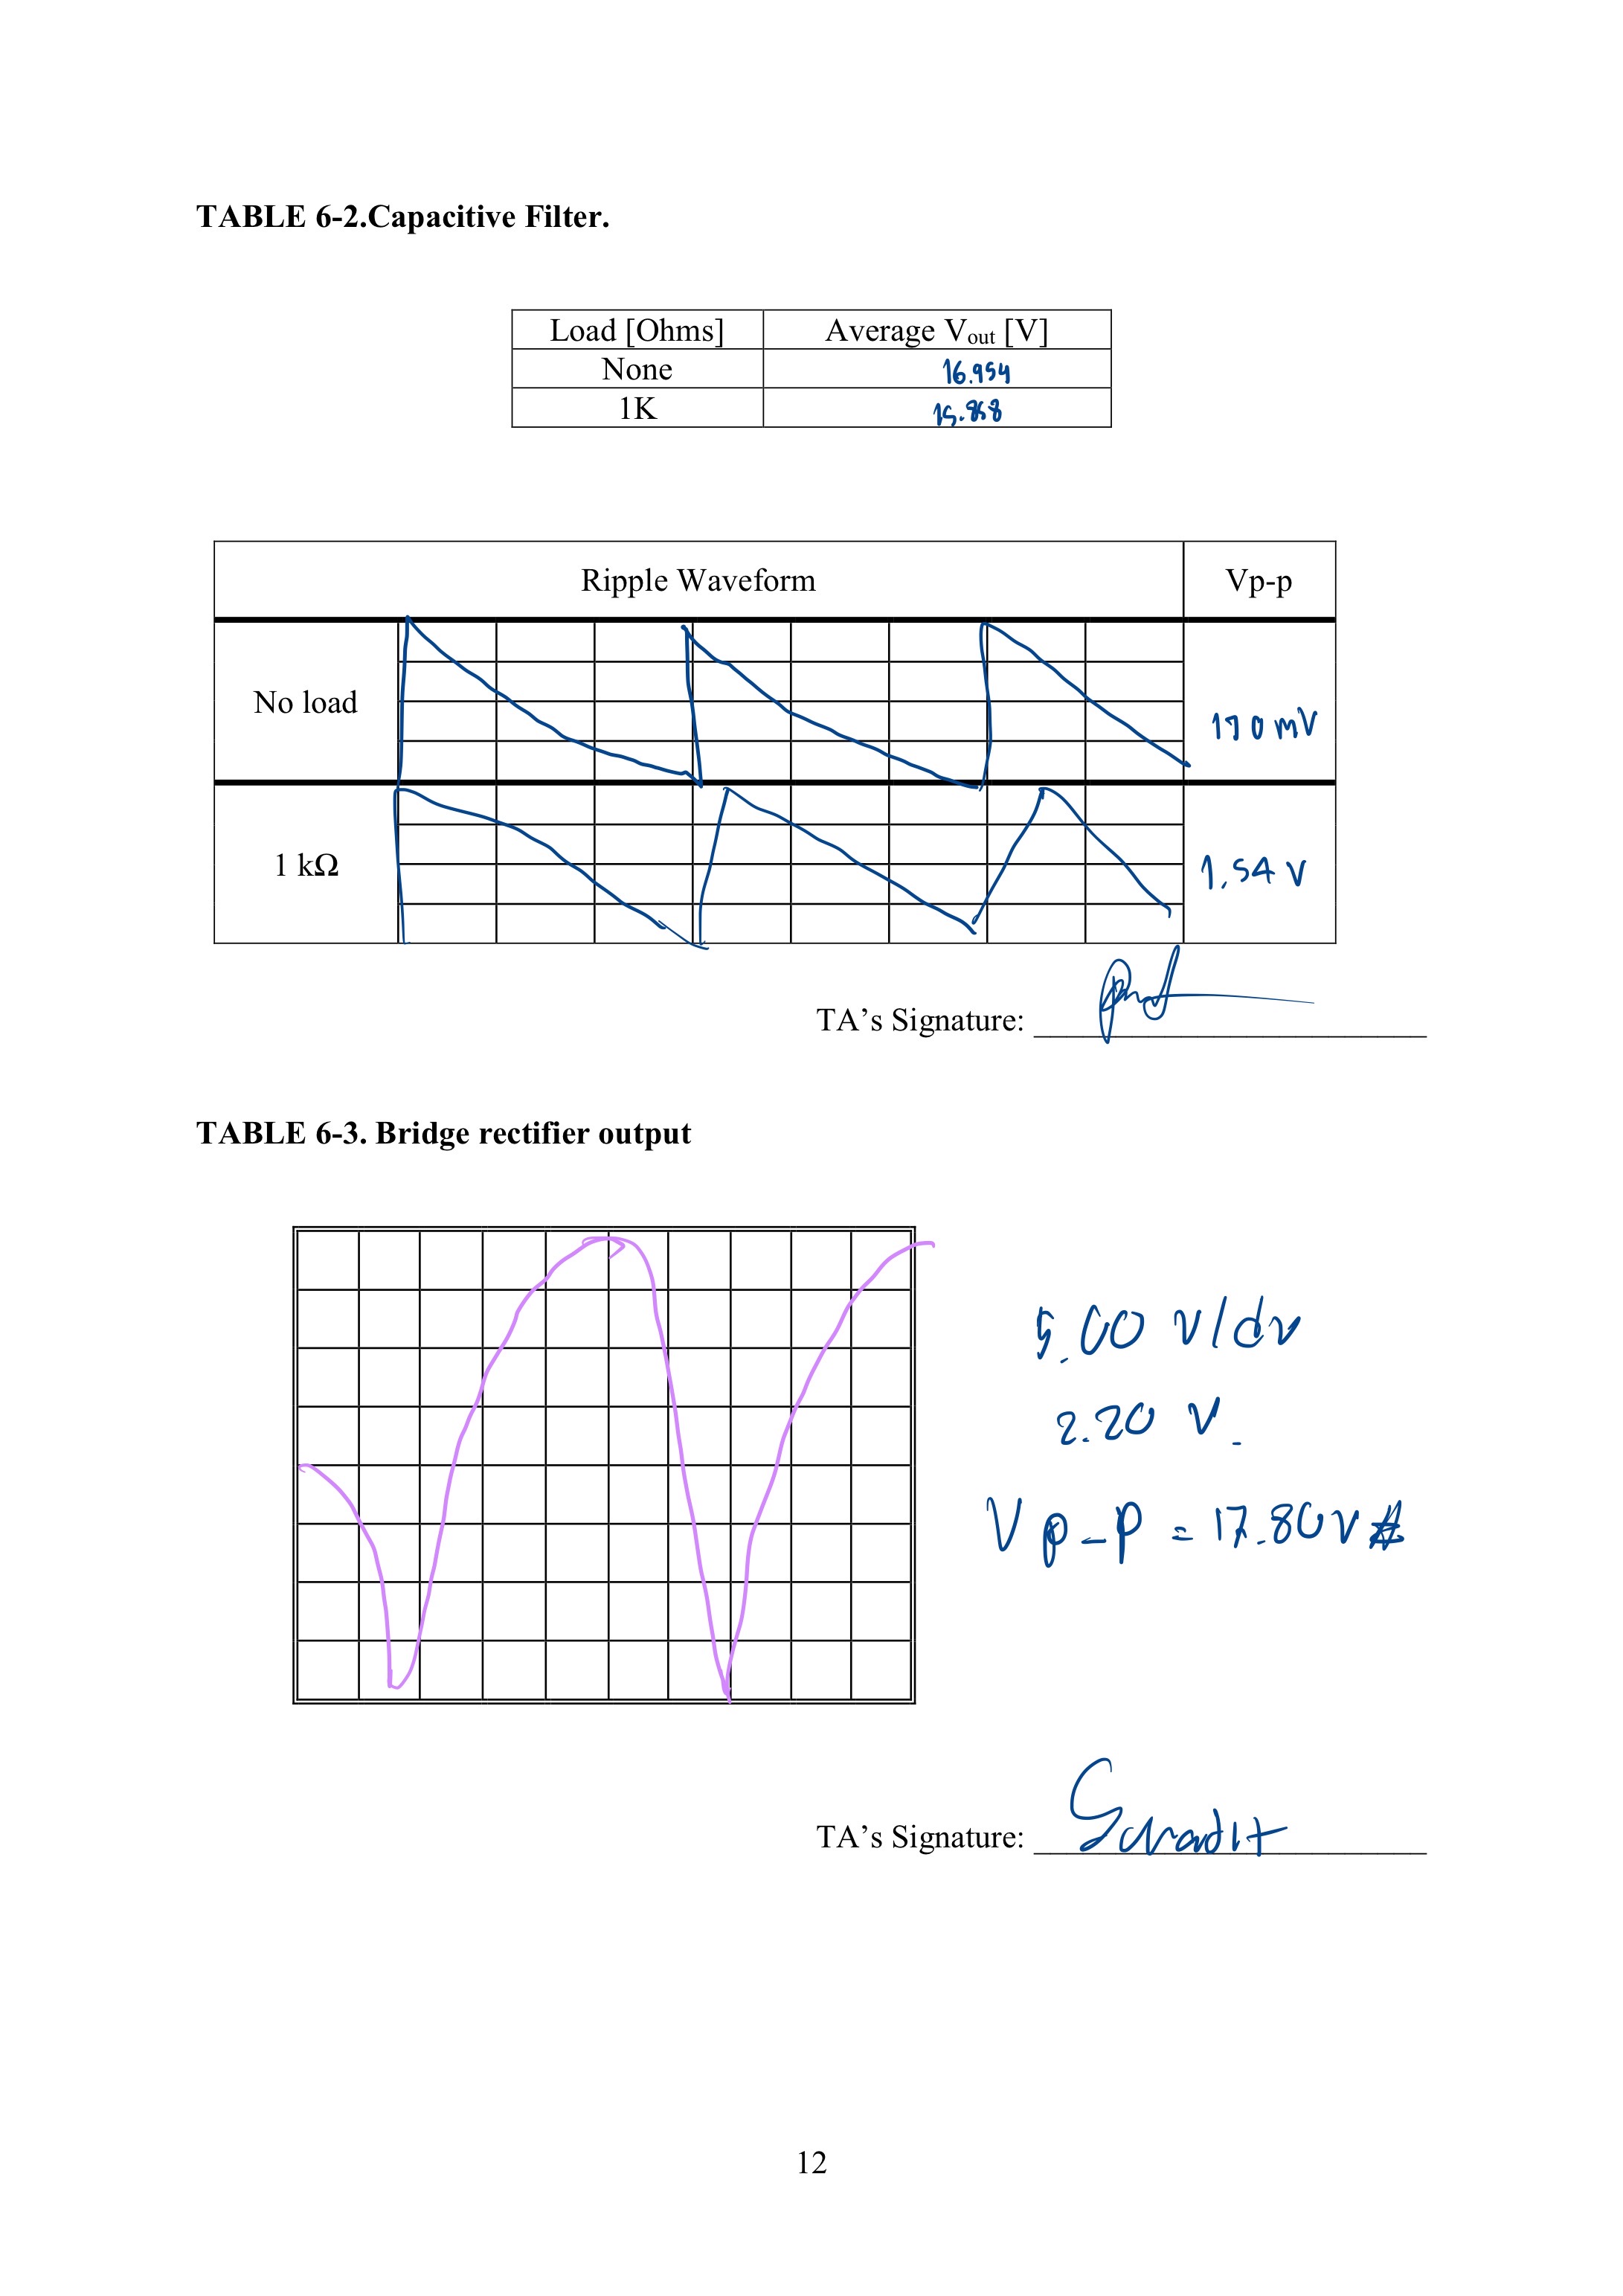 TABLE 6-2.Capacitive Filter.
Load [Ohms] Average Vout [V]
None 16.954
1K
Ripple Waveform Vp-p
No load mV
1 kΩ 1.54 V
TA’s Signature:
TABLE 6-3. Bridge rectifier output
5.00 V/dv
2.20 V.
Vp-p = 17.80V
TA’s Signature:
12